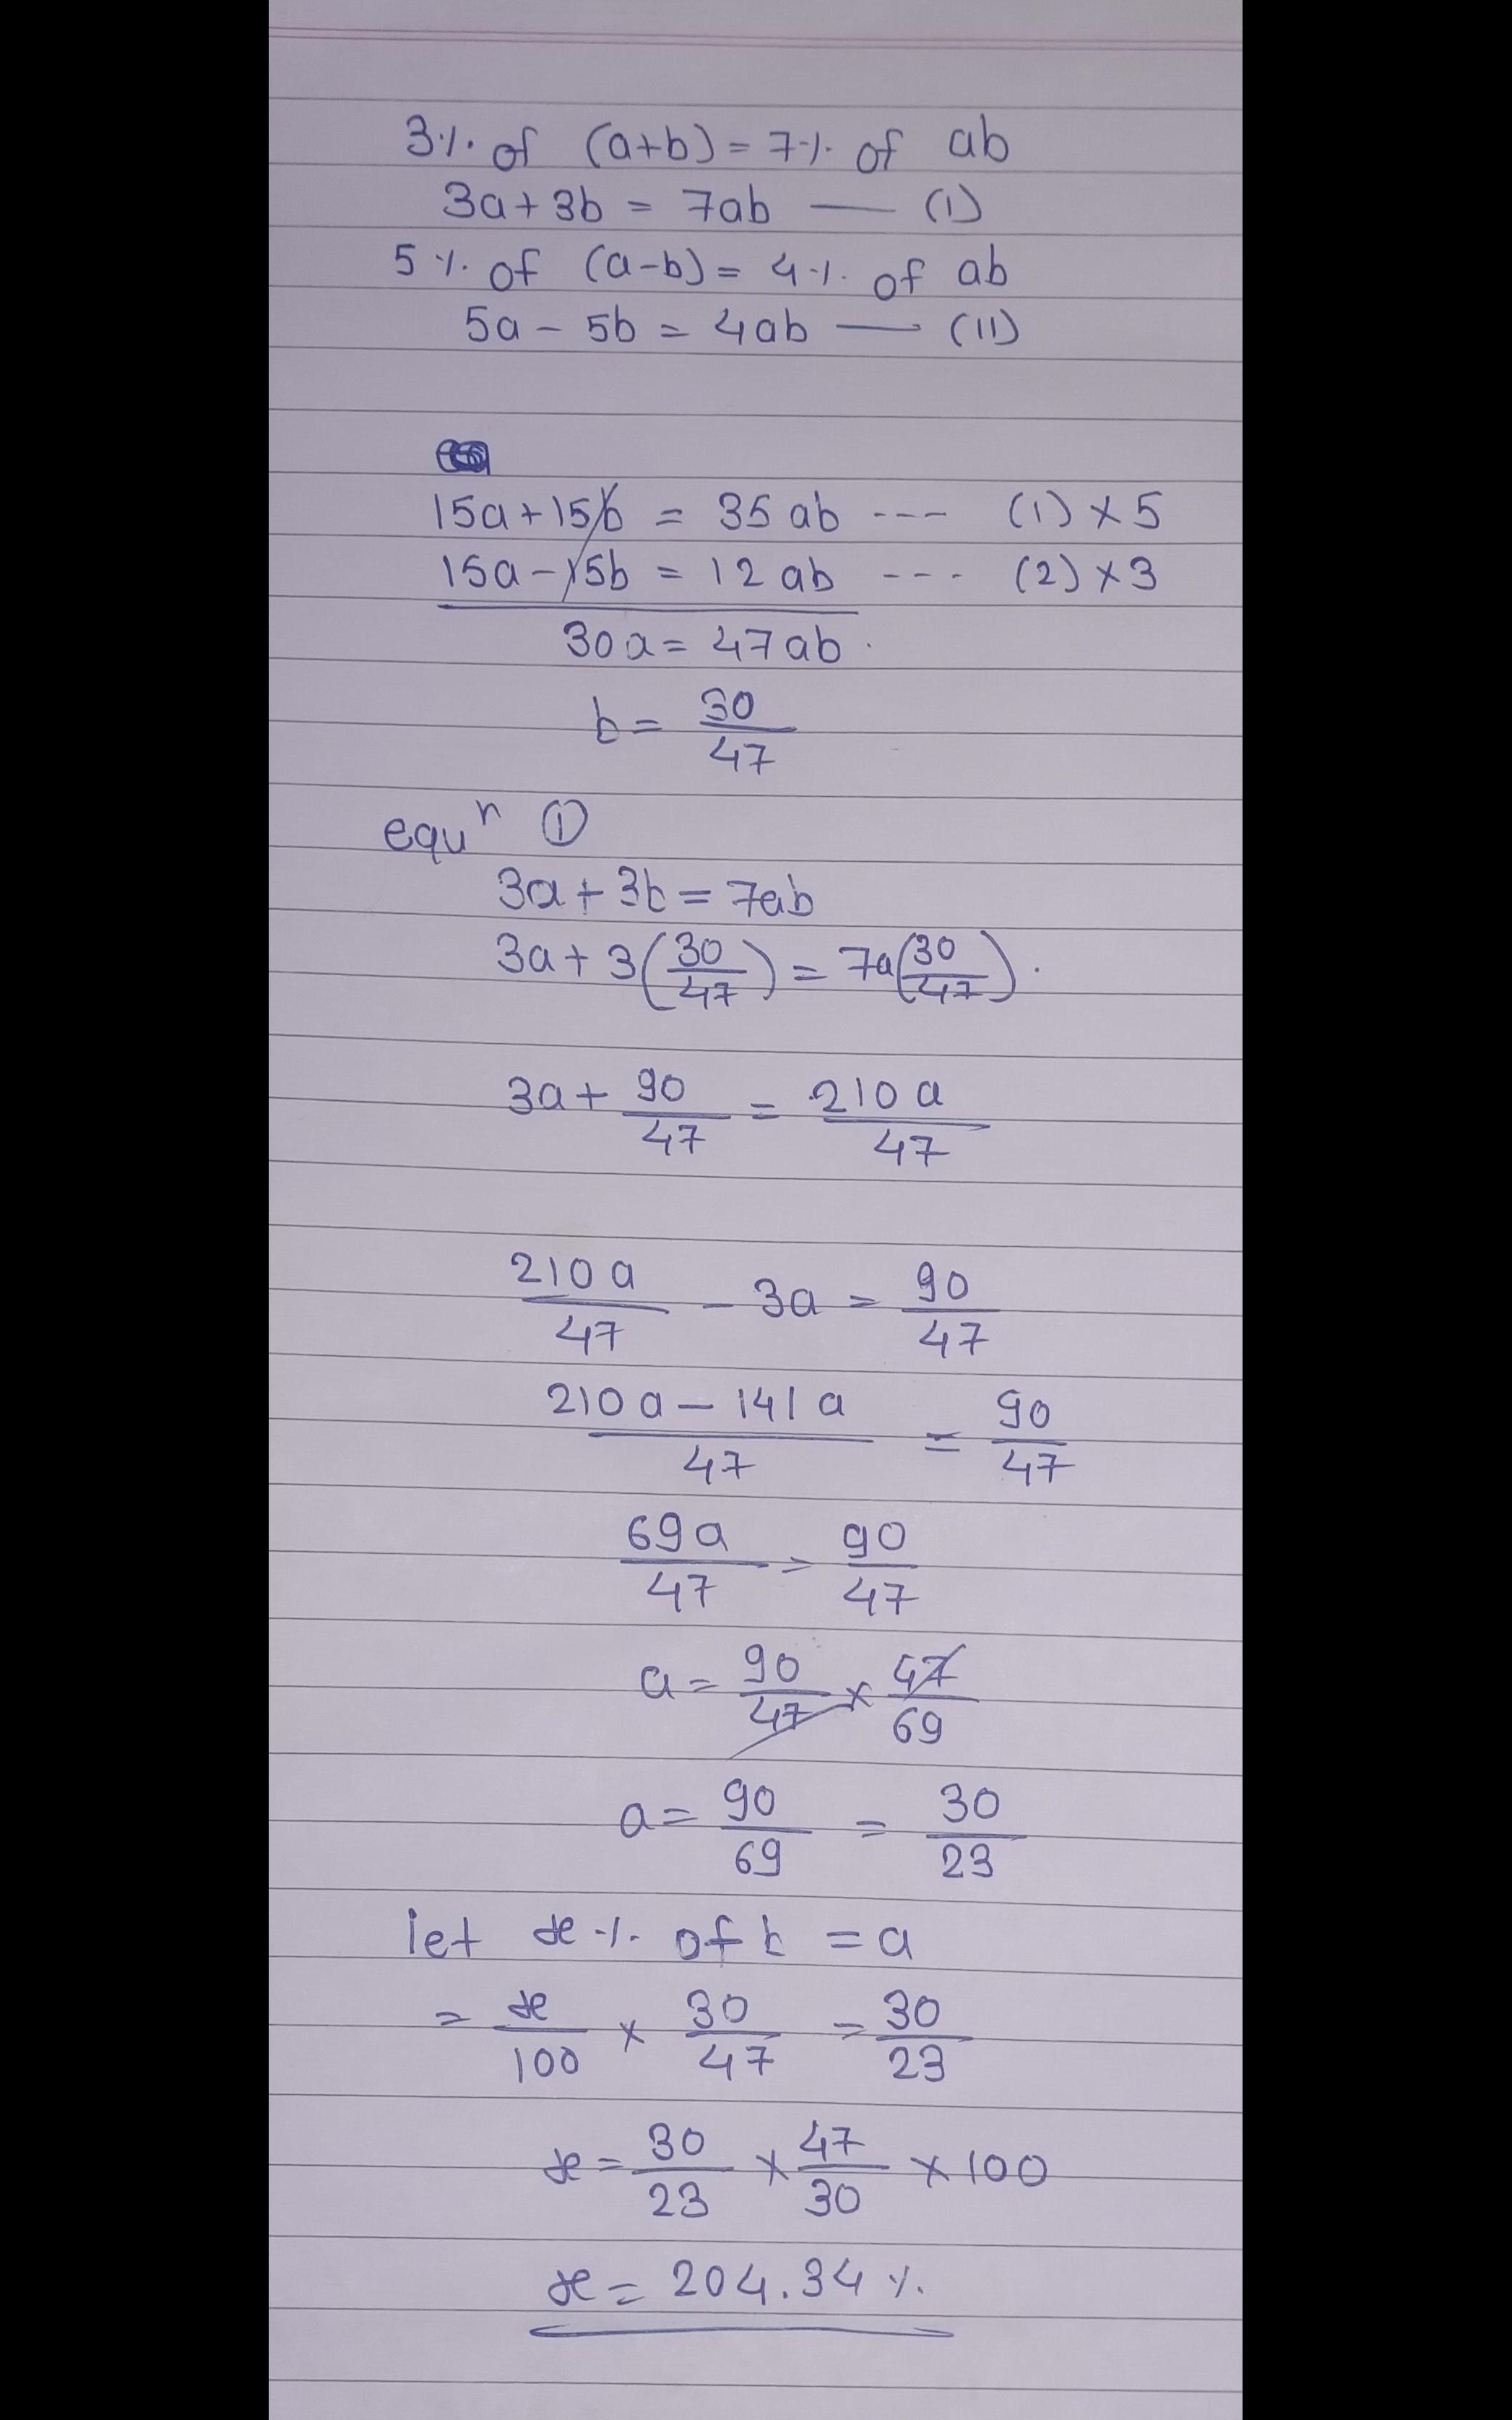 3% of (a+b) = 7% of ab
3a + 3b = 7ab — (1)
5% of (a-b) = 4% of ab
5a - 5b = 4ab — (11)
15a + 15b = 35 ab --- (1) × 5
15a - 15b = 12 ab --- (2) × 3
30a = 47ab.
b = 30/47
equⁿ ①
3a + 3b = 7ab
3a + 3(30/47) = 7a(30/47).
3a + 90/47 = 210a/47
210a/47 - 3a = 90/47
210a - 141a/47 = 90/47
69a/47 = 90/47
a = 90/47 × 47/69
a = 90/69 = 30/23
let x% of b = a
= x/100 × 30/47 = 30/23
x = 30/23 × 47/30 × 100
x = 204.34%